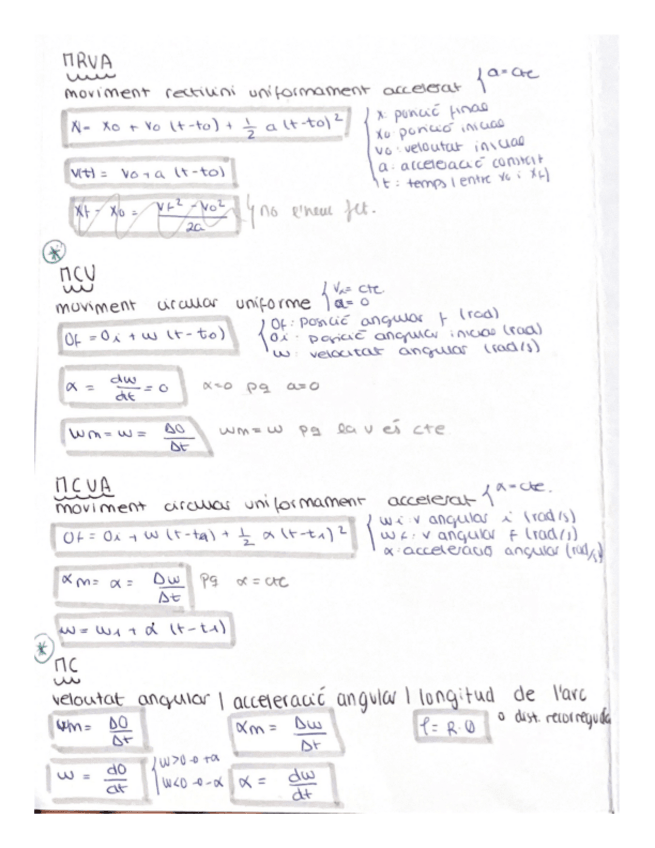 MRVA
moviment rectilini uniformament accelerat { a = cte
x = x0 + v0 (t-t0) + 1/2 a (t-t0)²
{ x: posició final
x0: posició inicial
v0: velocitat inicial
a: acceleració constant
t: temps (entre x0 i xf)
v(t) = v0 + a (t-t0)
xf - x0 = (vf² - v0²)/2a } no l'hem fet.
*
MCU
moviment circular uniforme { v = cte. a = 0
θf = θi + w (t-t0)
{ θf: posició angular f (rad)
θi: posició angular inicial (rad)
w: velocitat angular (rad/s)
α = dw/dt = 0 α=0 pq a=0
wm = w = Δθ/Δt wm = w pq la v és cte
MCUA
moviment circular uniformament accelerat { α = cte.
θf = θi + w (t-t1) + 1/2 α (t-t1)²
{ wi: v angular i (rad/s)
wf: v angular f (rad/s)
α: acceleració angular (rad/s
αm = α = Δw/Δt pq α = cte
w = w1 + α (t-t1)
*
MC
velocitat angular | acceleració angular | longitud de l'arc
o dist. recorreguda
wm = Δθ/Δt αm = Δw/Δt l = R·θ
w = dθ/dt { w>0 → +α w<0 → -α α = dw/dt